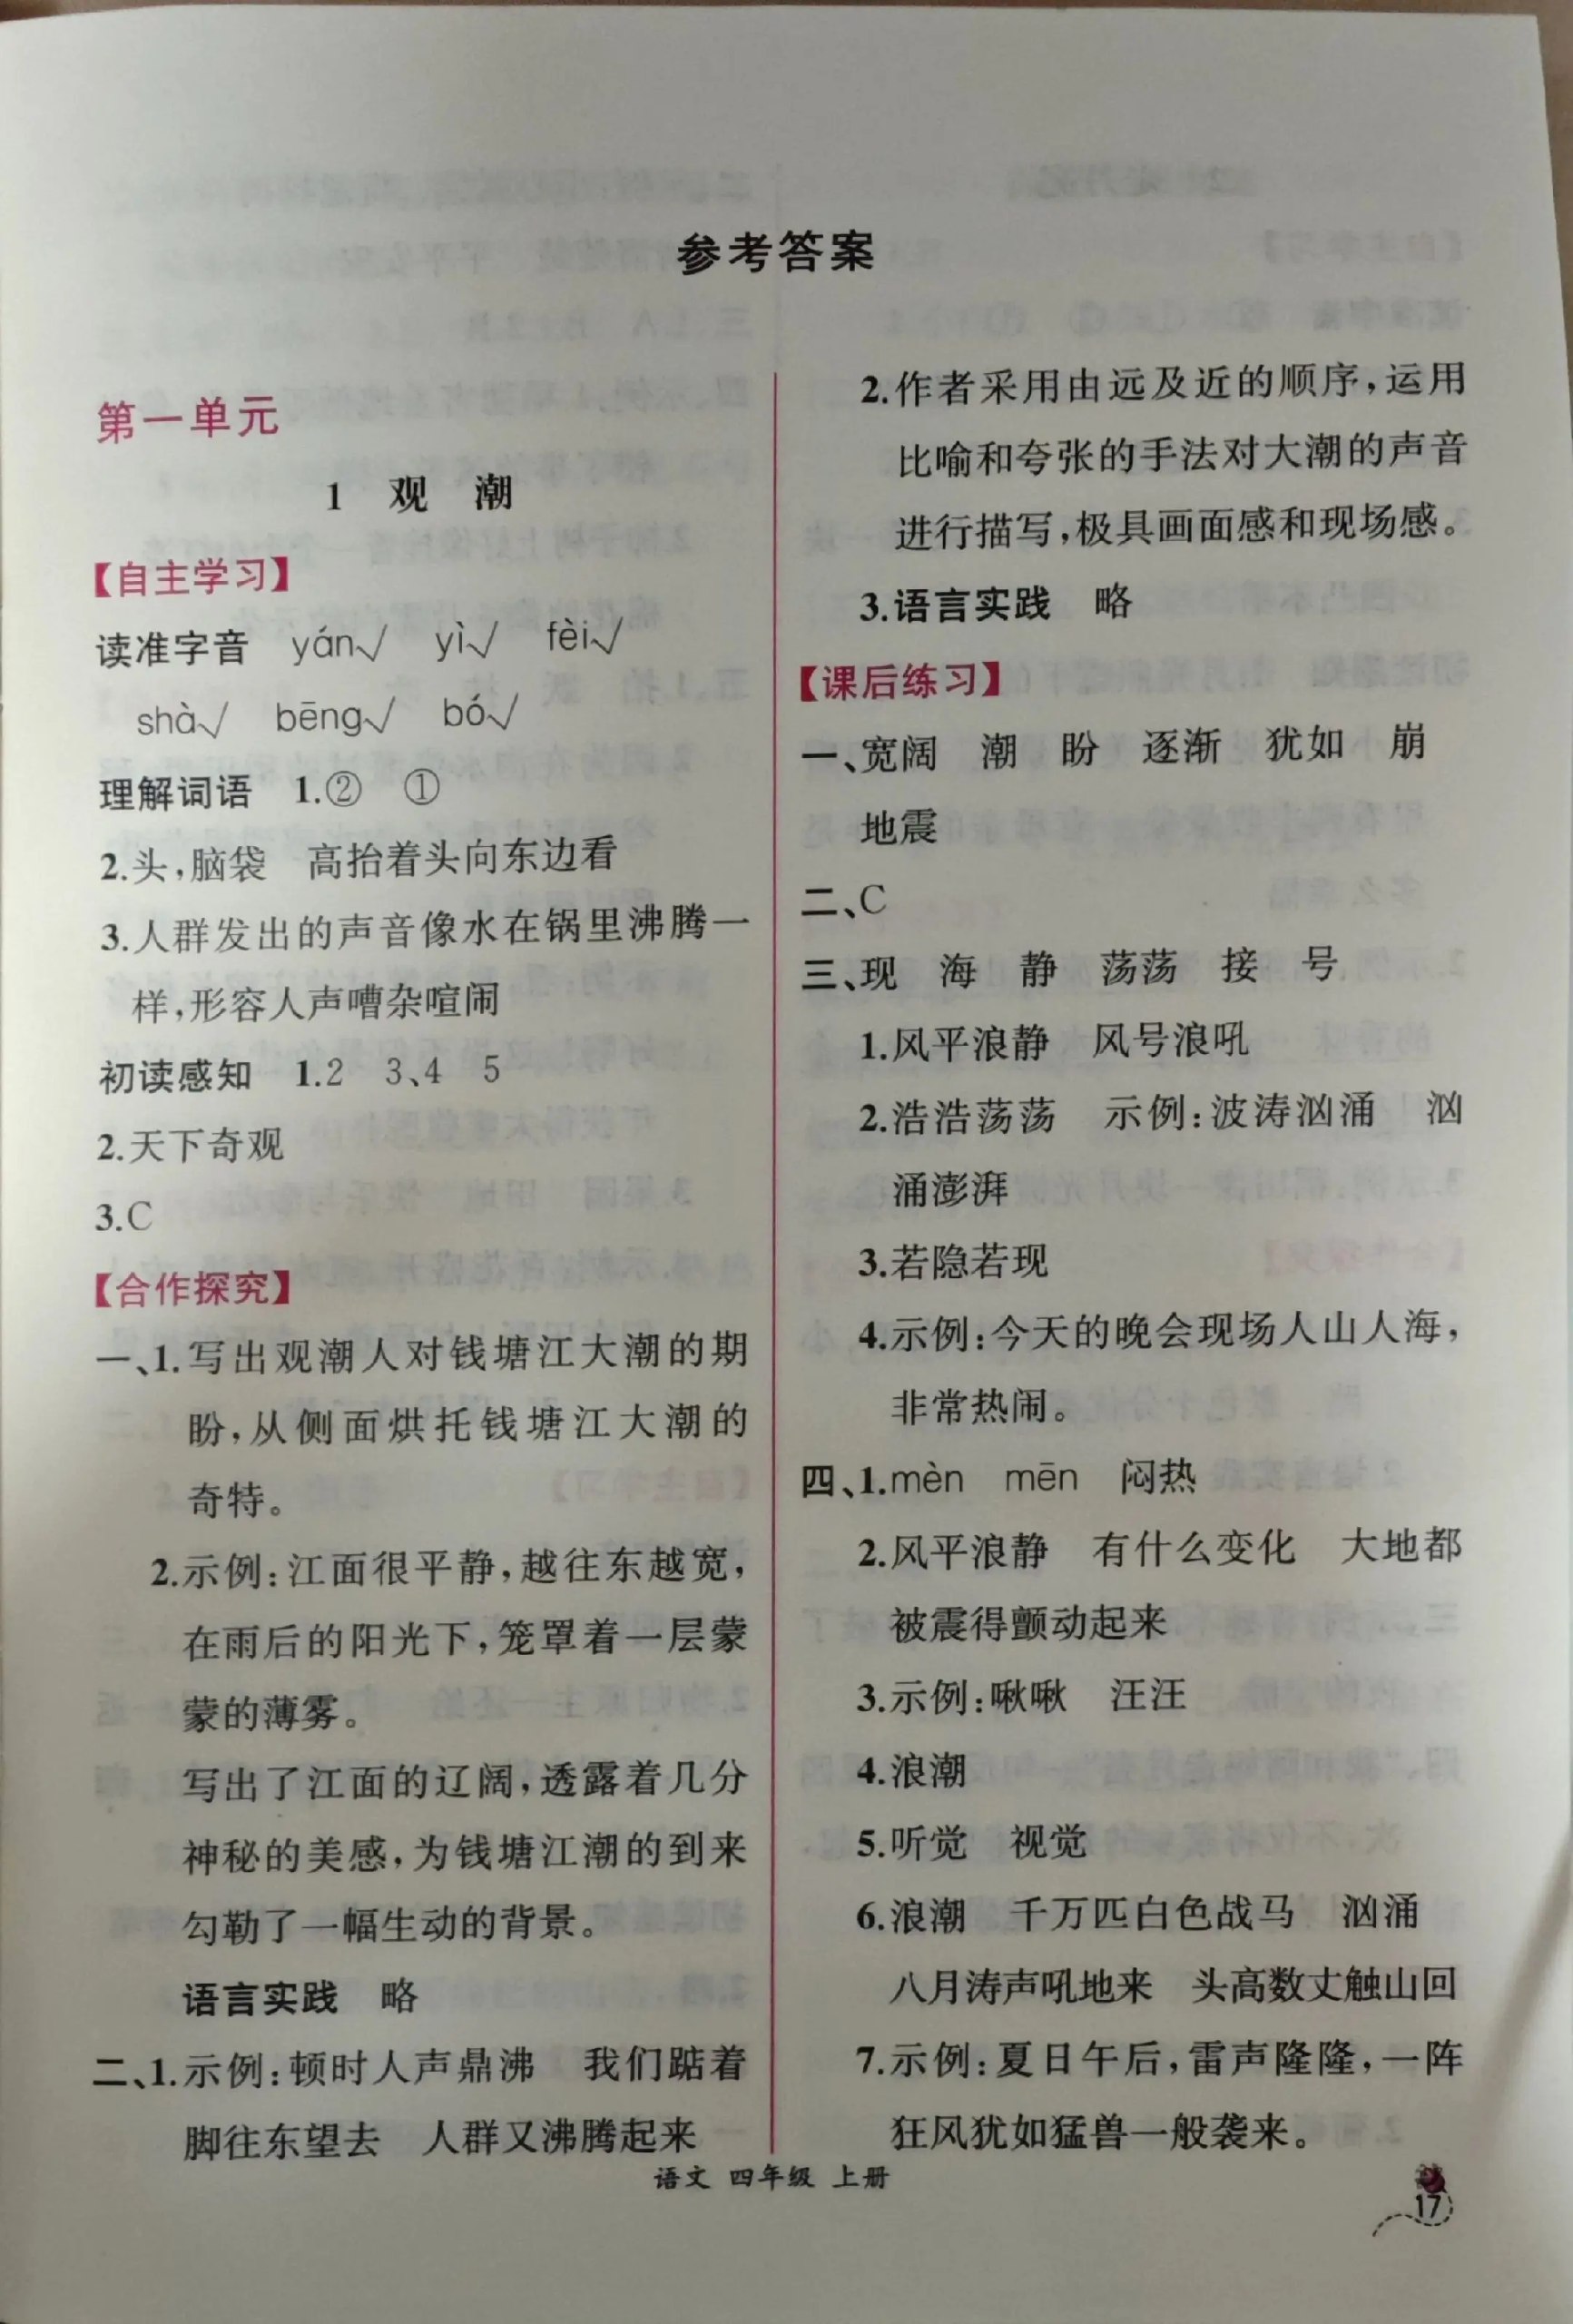 参考答案
第一单元
1 观 潮
【自主学习】
读准字音 yán√ yì√ fèi√
shà√ bēng√ bó√
理解词语 1.② ①
2.头,脑袋 高抬着头向东边看
3.人群发出的声音像水在锅里沸腾一
样,形容人声嘈杂喧闹
初读感知 1.2 3、4 5
2.天下奇观
3.C
【合作探究】
一、1.写出观潮人对钱塘江大潮的期
盼,从侧面烘托钱塘江大潮的
奇特。
2.示例:江面很平静,越往东越宽,
在雨后的阳光下,笼罩着一层蒙
蒙的薄雾。
写出了江面的辽阔,透露着几分
神秘的美感,为钱塘江潮的到来
勾勒了一幅生动的背景。
语言实践 略
二、1.示例:顿时人声鼎沸 我们踮着
脚往东望去 人群又沸腾起来
2.作者采用由远及近的顺序,运用
比喻和夸张的手法对大潮的声音
进行描写,极具画面感和现场感。
3.语言实践 略
【课后练习】
一、宽阔 潮 盼 逐渐 犹如 崩
地震
二、C
三、现 海 静 荡荡 接 号
1.风平浪静 风号浪吼
2.浩浩荡荡 示例:波涛汹涌 汹
涌澎湃
3.若隐若现
4.示例:今天的晚会现场人山人海,
非常热闹。
四、1.mèn mēn 闷热
2.风平浪静 有什么变化 大地都
被震得颤动起来
3.示例:啾啾 汪汪
4.浪潮
5.听觉 视觉
6.浪潮 千万匹白色战马 汹涌
八月涛声吼地来 头高数丈触山回
7.示例:夏日午后,雷声隆隆,一阵
狂风犹如猛兽一般袭来。
语文 四年级 上册
17